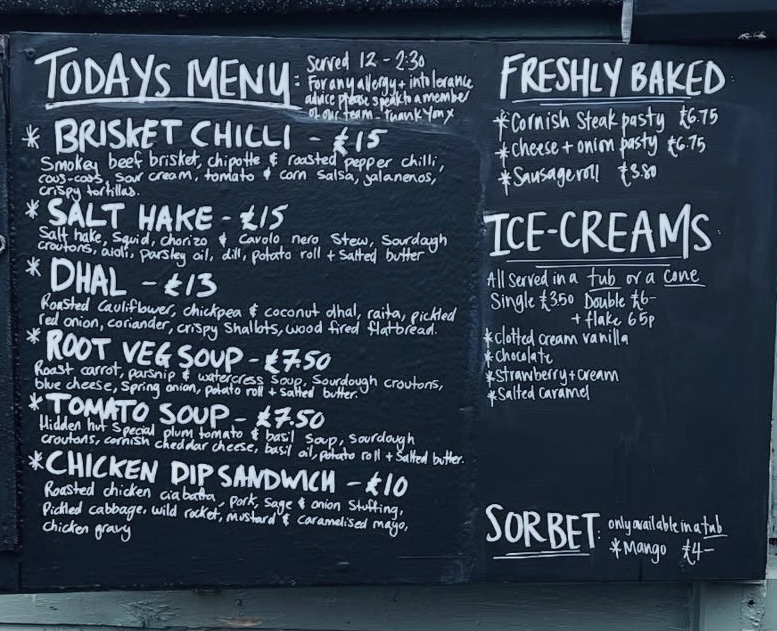 TODAYS MENU:
Served 12 - 2:30
For any allergy + intolerance
advice please speak to a member
of our team - thank you x
* BRISKET CHILLI - £15
Smokey beef brisket, chipotle & roasted pepper chilli,
cous-cous, sour cream, tomato & corn salsa, jalapenos,
crispy tortillas.
* SALT HAKE - £15
Salt hake, squid, chorizo & Cavolo nero stew, sourdough
croutons, aioli, parsley oil, dill, potato roll + salted butter
* DHAL - £13
Roasted cauliflower, chickpea & coconut dhal, raita, pickled
red onion, coriander, crispy shallots, wood fired flatbread.
* ROOT VEG SOUP - £7.50
Roast carrot, parsnip & watercress soup, sourdough croutons,
blue cheese, spring onion, potato roll + salted butter.
* TOMATO SOUP - £7.50
Hidden hut special plum tomato & basil soup, sourdough
croutons, cornish cheddar cheese, basil oil, potato roll + salted butter.
* CHICKEN DIP SANDWICH - £10
Roasted chicken ciabatta, pork, sage & onion stuffing,
Pickled cabbage, wild rocket, mustard & caramelised mayo,
chicken gravy
FRESHLY BAKED
* Cornish Steak pasty £6.75
* Cheese + onion pasty £6.75
* Sausage roll £3.80
ICE-CREAMS
All served in a tub or a cone
Single £3.50 Double £6-
+ flake 65p
* clotted cream vanilla
* chocolate
* Strawberry + cream
* Salted caramel
SORBET: only available in a tub
* Mango £4-